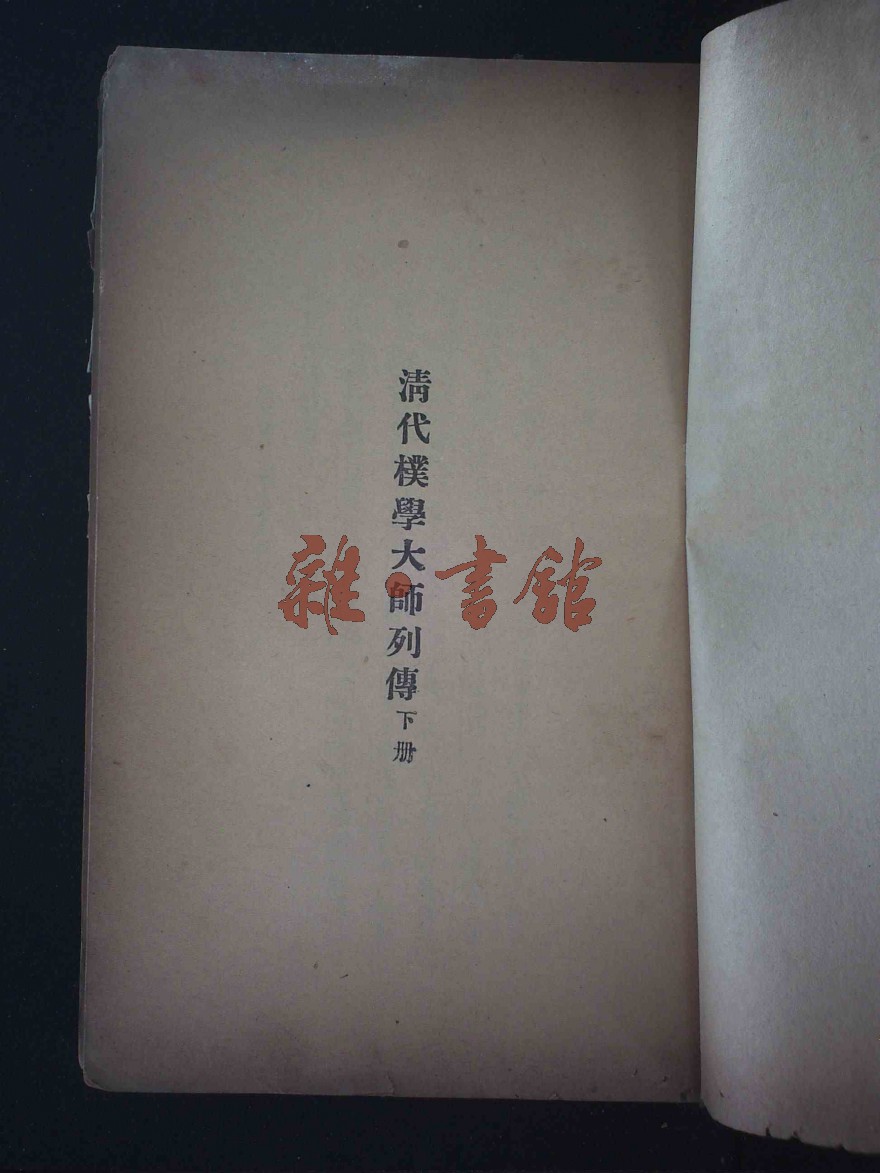 清代樸學大師列傳下册
雜·書館